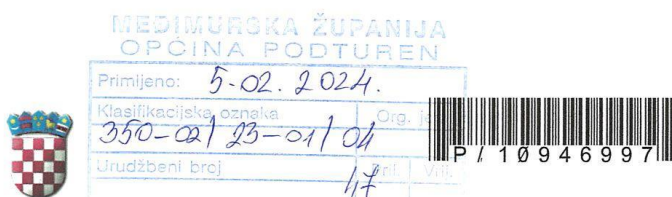 MEĐIMURSKA ŽUPANIJA
OPĆINA PODTUREN
Primljeno: 5-02. 2024.
Klasifikacijska oznaka Org. j
350-02/23-01/04
Urudžbeni broj Pril. Vri
47
P/10946997